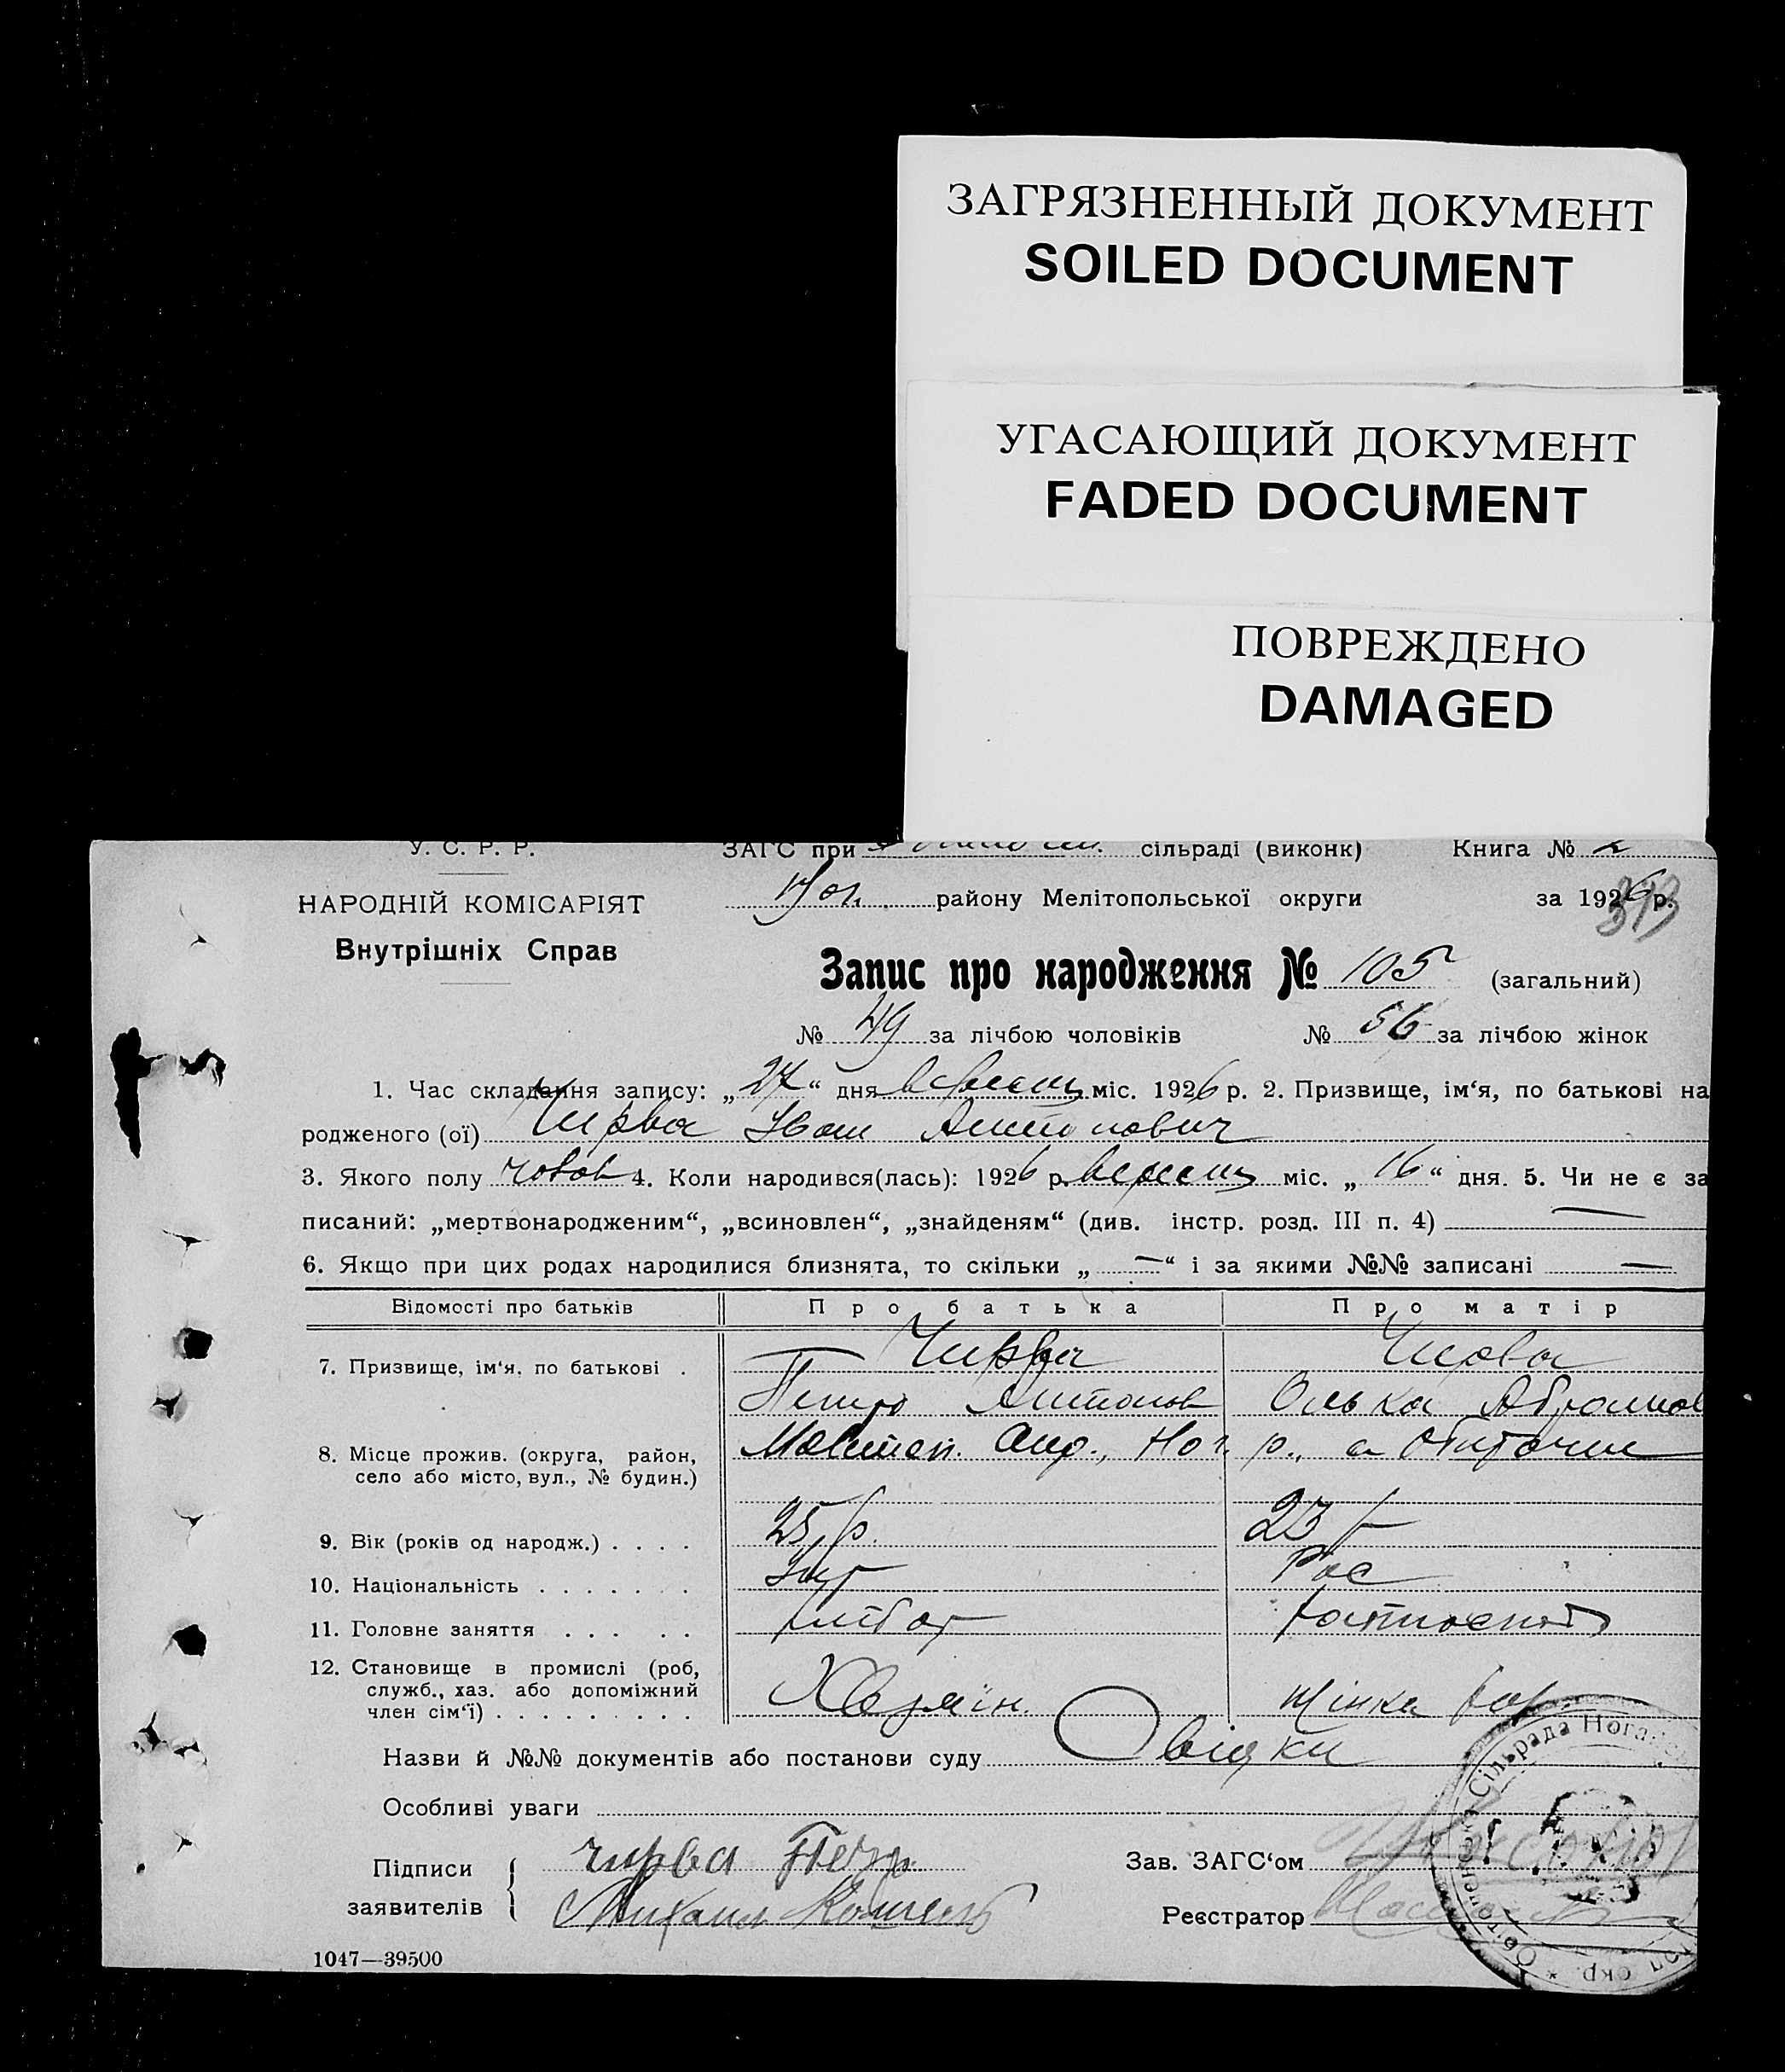 ЗАГРЯЗНЕННЫЙ ДОКУМЕНТ
SOILED DOCUMENT
УГАСАЮЩИЙ ДОКУМЕНТ
FADED DOCUMENT
ПОВРЕЖДЕНО
DAMAGED
У. С. Р. Р. ЗАГС при сільраді (виконк) Книга № 2
НАРОДНІЙ КОМІСАРІЯТ Ног. району Мелітопольської округи за 1926 р.
Внутрішніх Справ
Запис про народження № 105 (загальний)
№ 49 за лічбою чоловіків № 56 за лічбою жінок
1. Час складання запису: „27“ дня міс. 1926 р. 2. Призвище, ім‘я, по батькові на
родженого (ої) Чирва Іван
3. Якого полу чолов 4. Коли народився(лась): 1926 р. міс. „16“ дня. 5. Чи не є за
писаний: „мертвонародженим“, „всиновлен“, „знайденям“ (див. інстр. розд. III п. 4) —
6. Якщо при цих родах народилися близнята, то скільки „—“ і за якими №№ записані —
Відомості про батьків Про батька Про матір
7. Призвище, ім‘я, по батькові . Чирва Чирва
Петро Антонов Олька Абрамов
8. Місце прожив. (округа, район, Мелітоп. окр., Ног. р., с. Обиточне
село або місто, вул., № будин.)
9. Вік (років од народж.) . . . . 25 р. 23 р
10. Національність . . . . . . . Укр Рос
11. Головне заняття . . . . . хлібор
12. Становище в промислі (роб,
служб., хаз. або допоміжний
член сім‘ї) . . . . . . . . . Хазяїн. жінка
Назви й №№ документів або постанови суду
Особливі уваги
Підписи чирва Петр Зав. ЗАГС‘ом
заявителів Михаил Реєстратор
Обіточенська Сільрада Нога
окр.
1047—39500